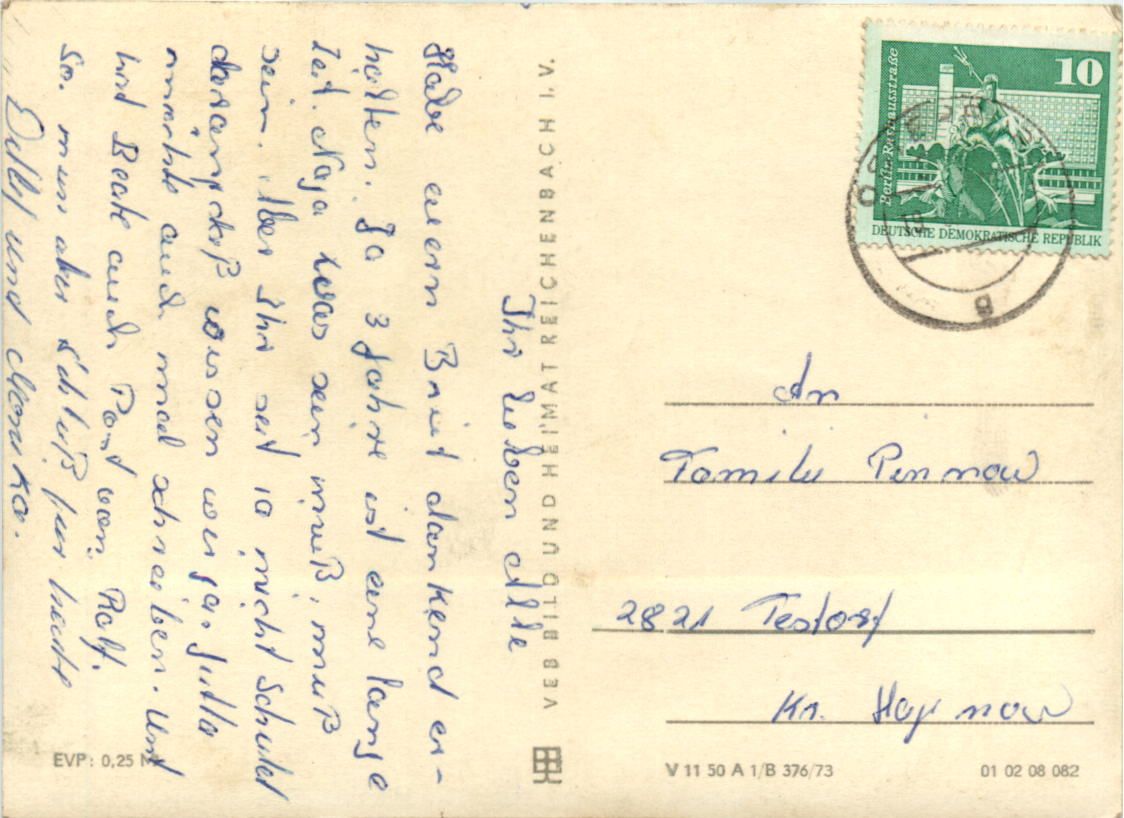 Ihr lieben Alle
Habe euern Brief dankend er-
halten. Ja 3 Jahre ist eine lange
Zeit. Naja was sein muß, muß
sein. Aber Ihr seit ja nicht Schuld
daran, daß wissen wir ja.
auch mal schreiben. Und
und Beate auch Post von Ralf.
So. nun aber Schluß für heute
und Monika.
VEB BILD UND HEIMAT REICHENBACH I. V.
EVP: 0,25 M
Berlin-Rathausstraße
10
DEUTSCHE DEMOKRATISCHE REPUBLIK
g
An
Familie Pinnow
2821 Testorf
Kr. Hagenow
V 11 50 A 1/B 376/73
01 02 08 082